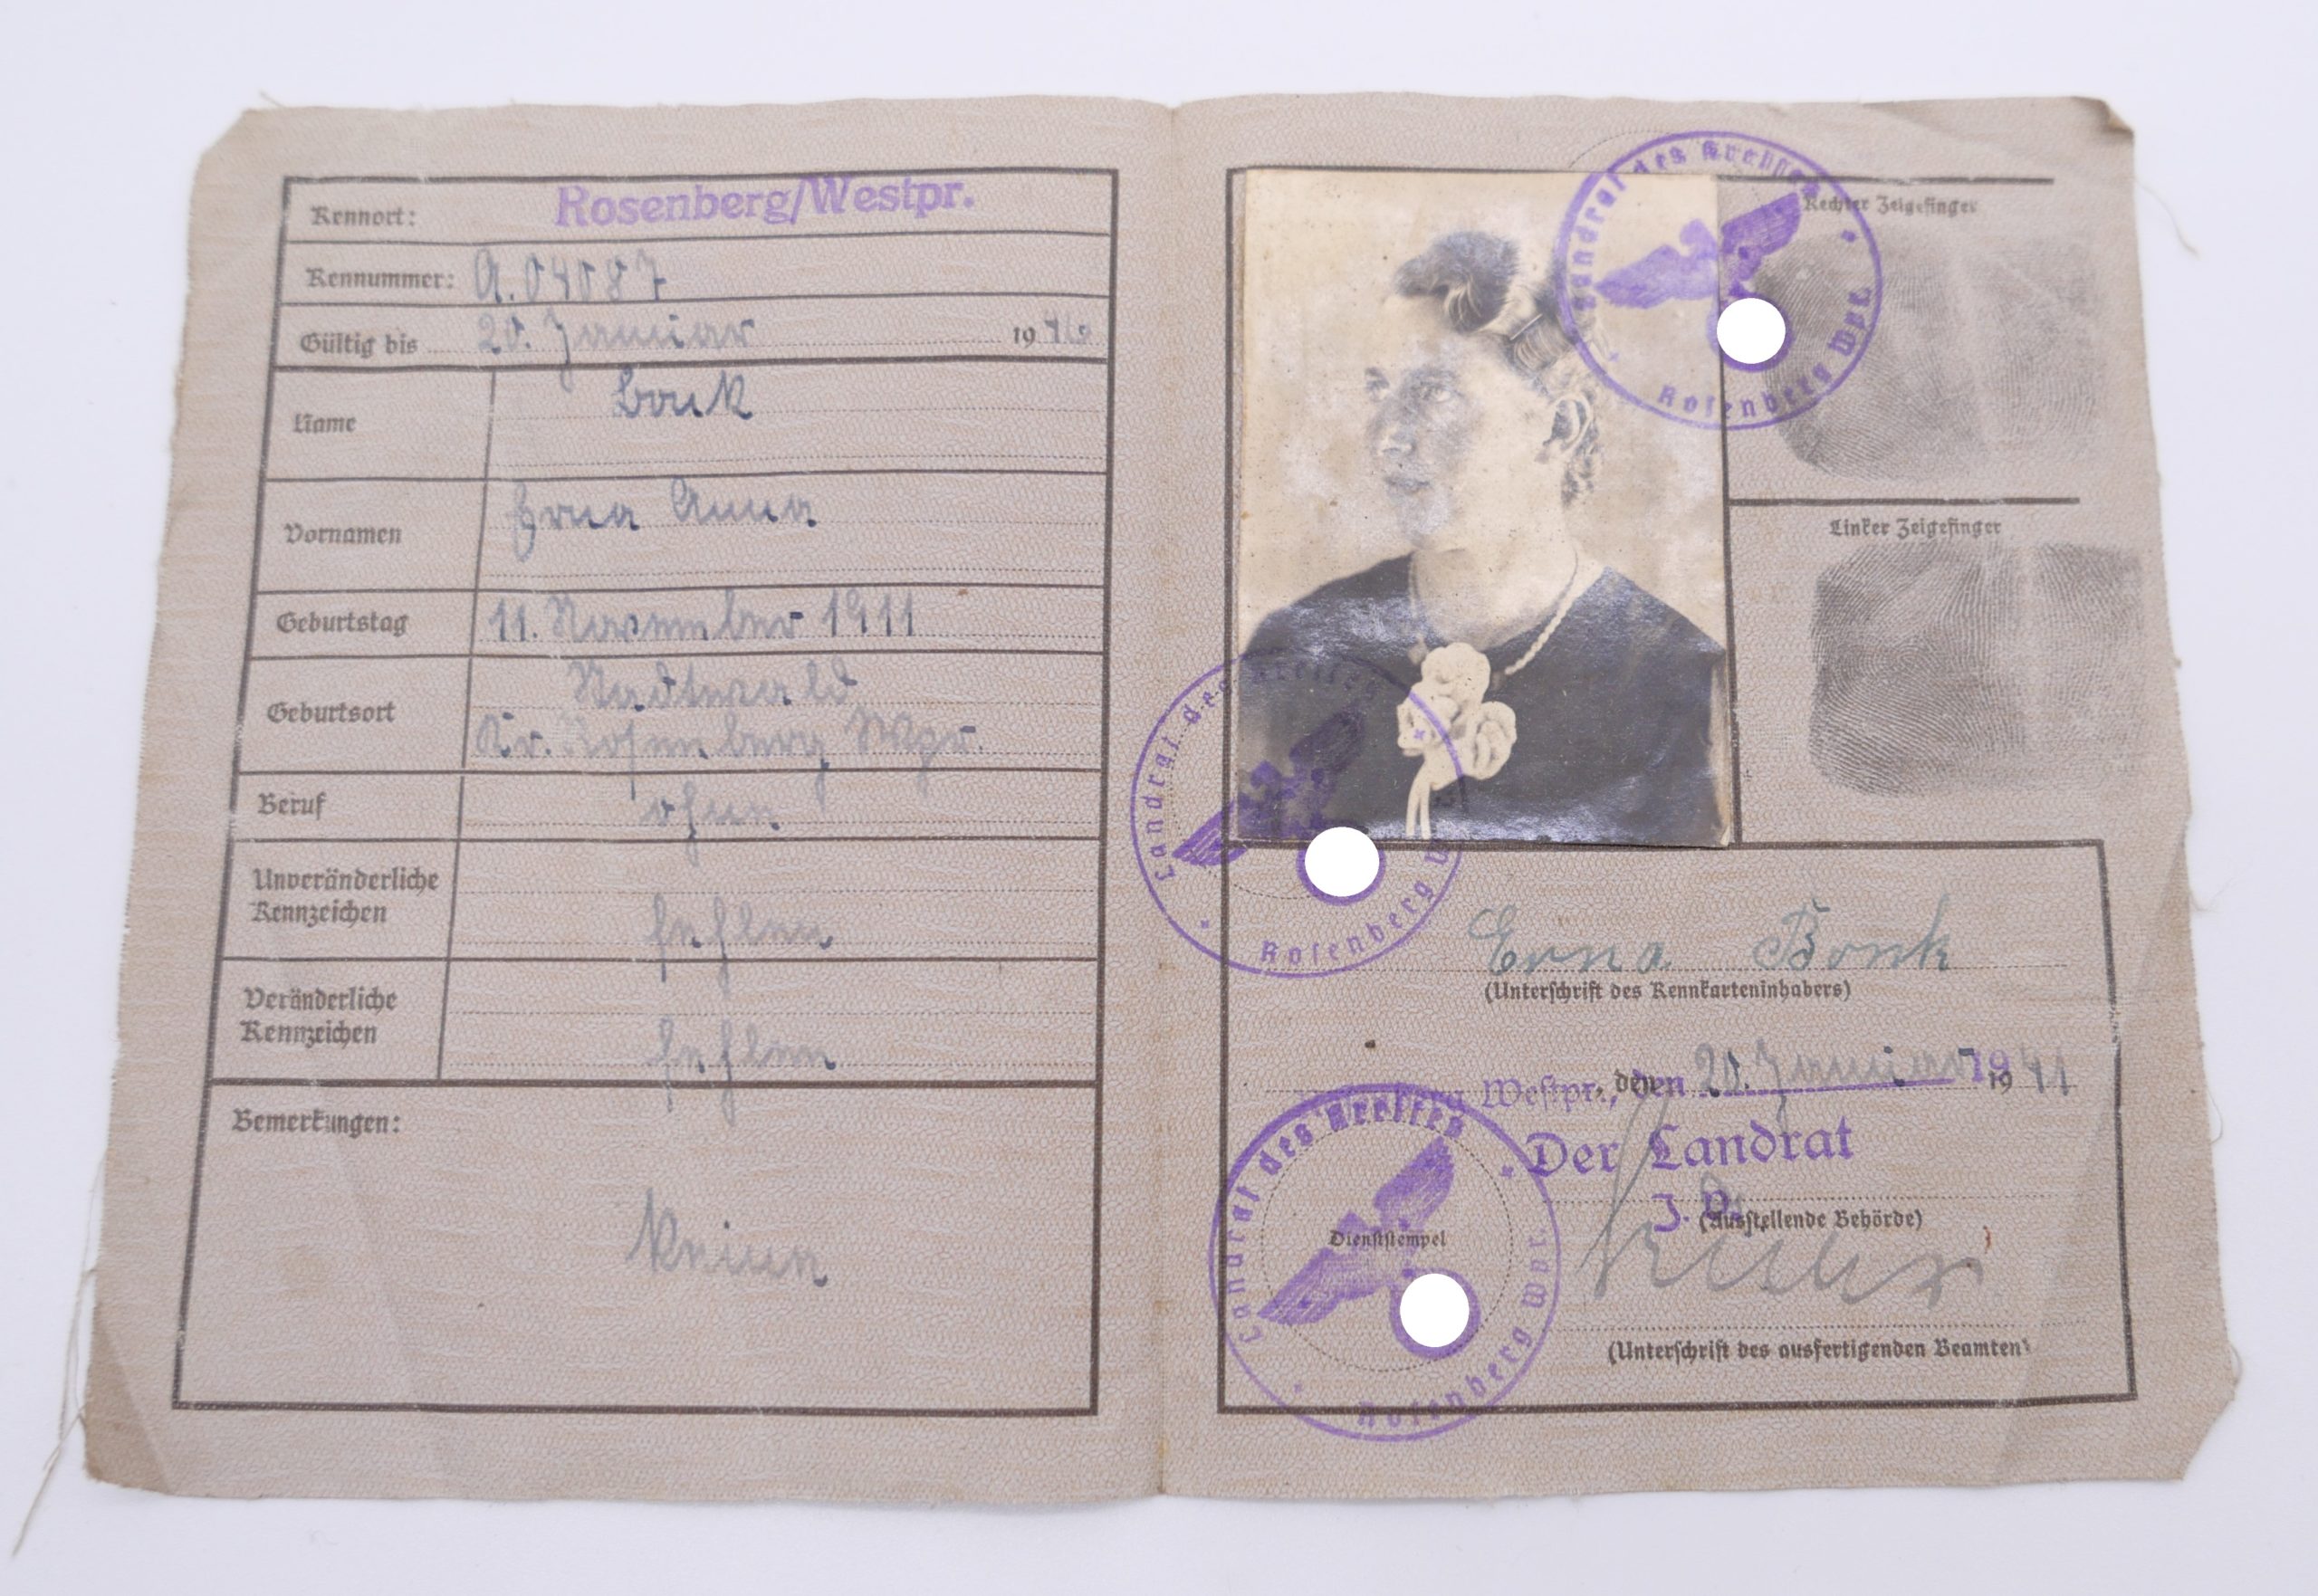 Kennort: Rosenberg/Westpr.
Kennummer: A.04087
Gültig bis 20. Januar 1946
Name Bonk
Vornamen Erna Anna
Geburtstag 11. November 1911
Geburtsort Stadtwald
Kr. Rosenberg Wpr.
Beruf ohne
Unveränderliche
Kennzeichen fehlen
Veränderliche
Kennzeichen fehlen
Bemerkungen:
Keine
Landrat des Kreises
Rosenberg Wpr.
Rechter Zeigefinger
Linker Zeigefinger
Landrat des Kreises
Rosenberg W
Erna Bonk
(Unterschrift des Kennkarteninhabers)
Westpr., den 20. Januar 1941
Der Landrat
J. V.
(Ausstellende Behörde)
Landrat des Kreises
Rosenberg Wpr.
Dienststempel
(Unterschrift des ausfertigenden Beamten)